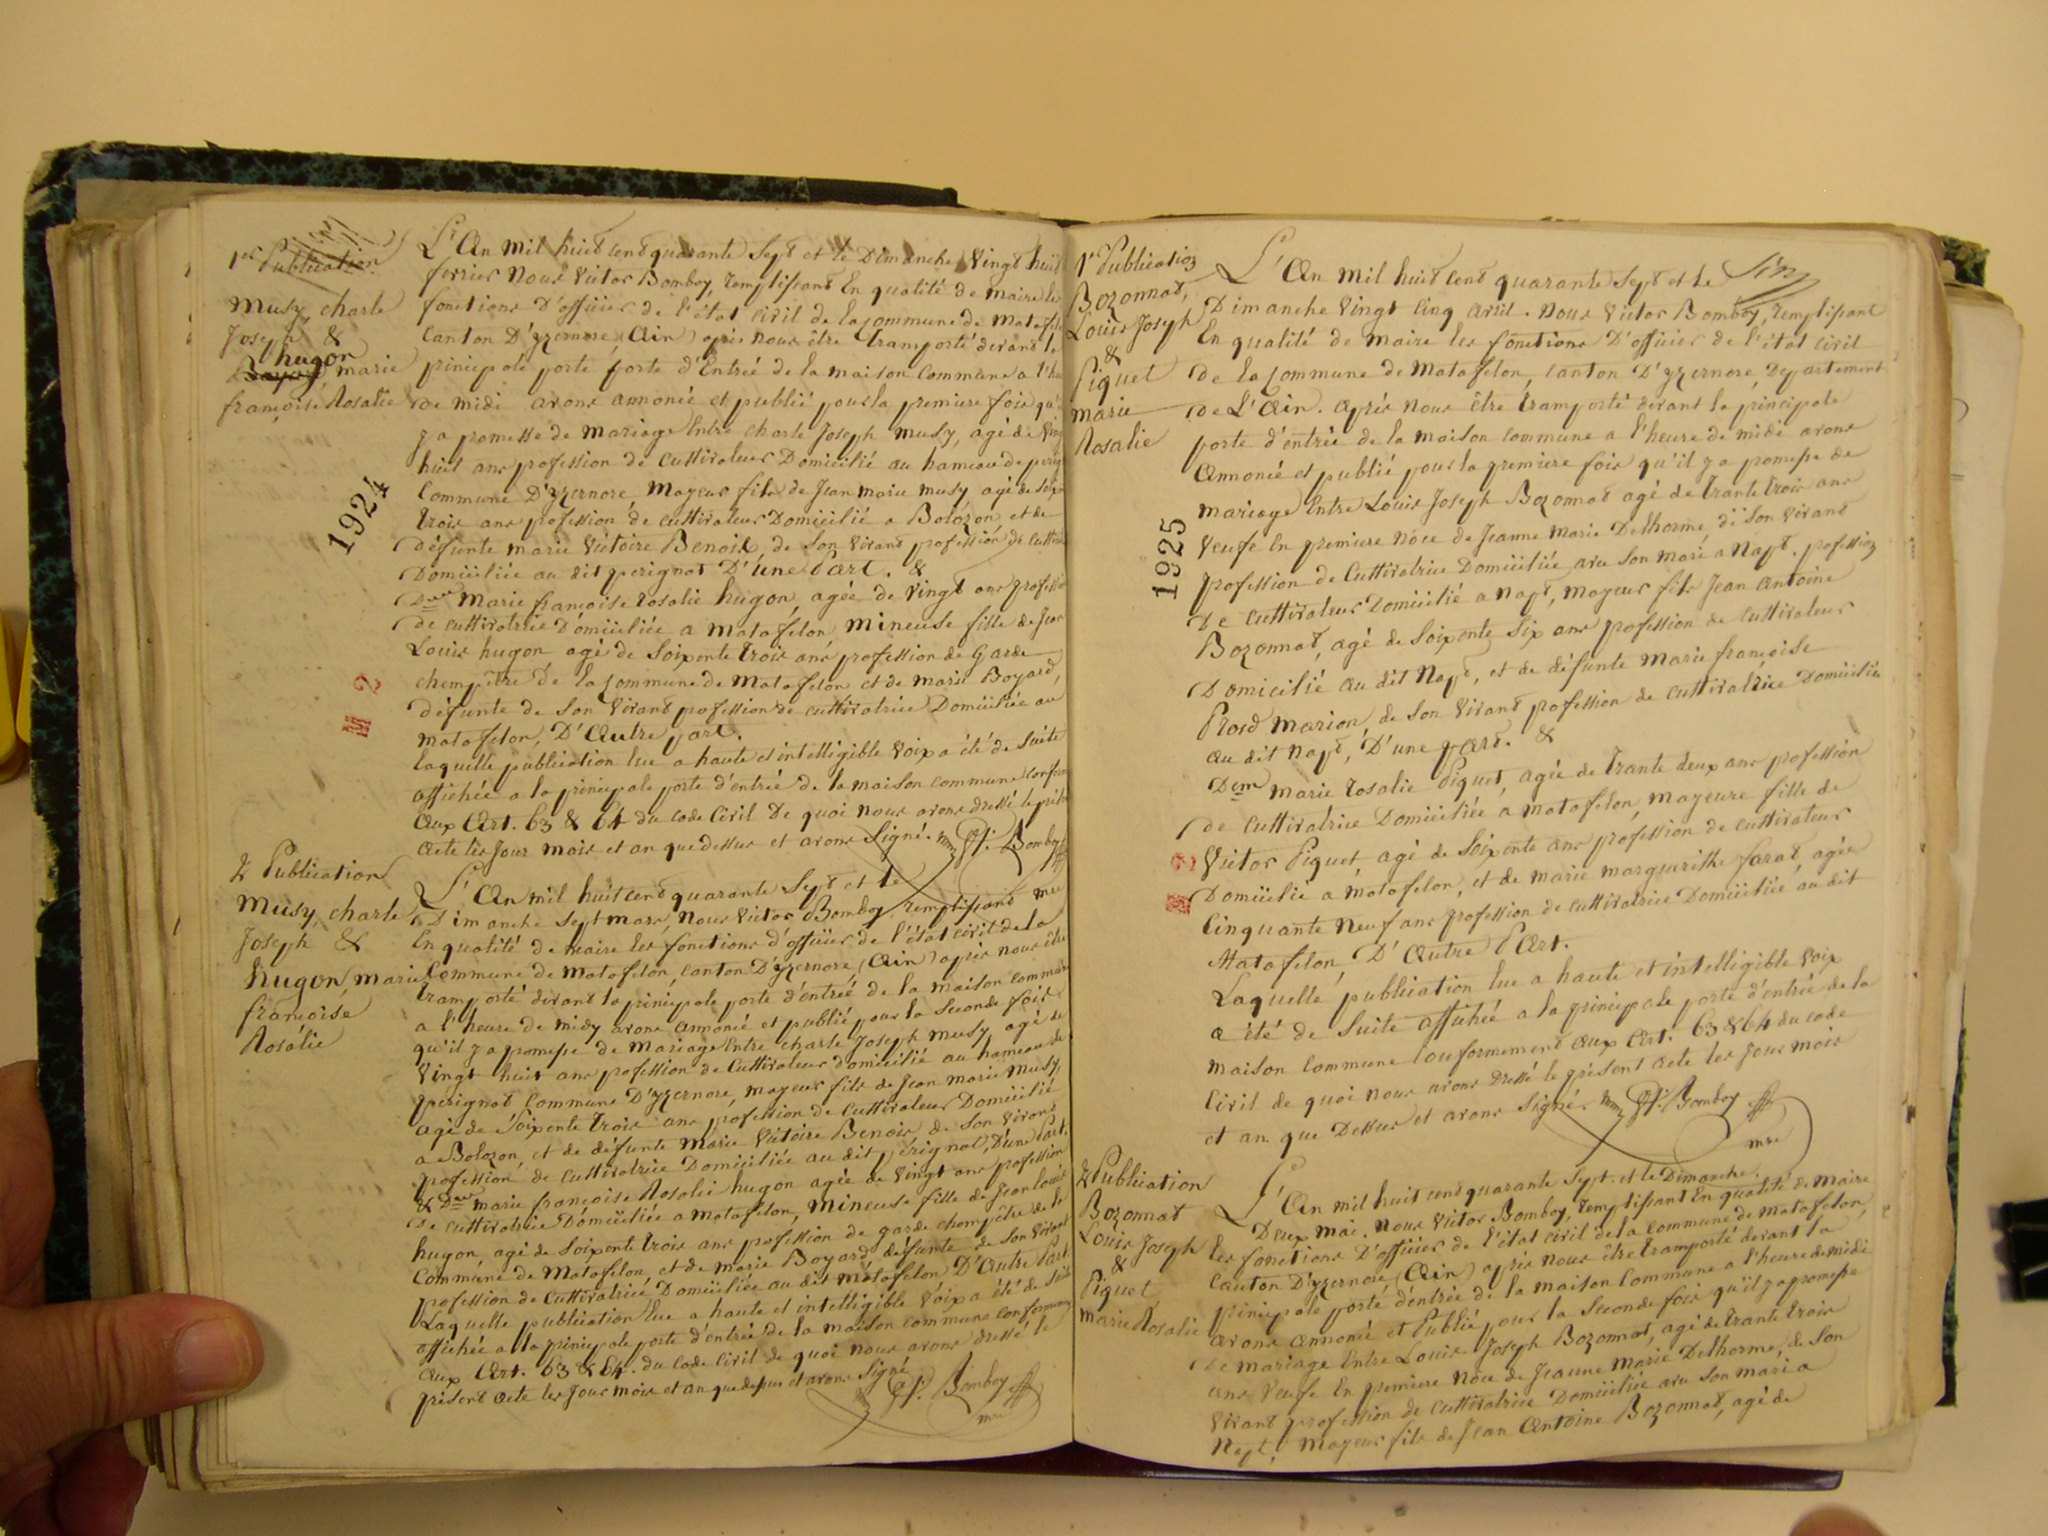 1re Publication
Musy, charle
Joseph &
hugon
Bayard, marie
françoise Rosalie
1924
M 2
L'An mil huit cent quarante Sept et le Dimanche Vingt huit
fevrier Nous Victor Bomboy, remplissant En qualité de maire les
fonctions D'officier de l'état civil de la Commune de Matafelon
Canton D'yzernore (Ain) après nous être tramporté devant la
principale porte porte d'Entrée de la maison Commune a l'heure
de midi avons annoncé et publié pour la premiere fois qu'il
y a promesse de Mariage Entre charle Joseph Musy, agé de Vingt
huit ans profession de cultivateur Domicilié au hameau de perignat
Commune D'yzernore, Mayeur fils de Jean marie musy agé de Soixente
trois ans profession de cultivateur Domicilié a Bolozon et de
défunte marie Victoire Benoit, de Son Vivant profession de cultivatrice
Domiciliée au dit perignat D'une Part. &
Delle Marie françoise rosalie hugon, agée de Vingt ans profession
de cultivatrice Domiciliée a Matafelon, Mineuse fille de Jean
Louis hugon agé de Soixente trois ans profession de Garde
chempêtre de la Commune de Matafelon et de marie Boyard,
défunte de Son Vivant profession de cultivatrice Domiciliée au
matafelon, D'Autre part.
laquelle publication lue a haute et intelligible Voix a été de Suite
affichée a la principale porte d'entrée de la maison Commune conformement
Aux Art. 63 & 64 du code Civil de quoi nous avons dressé le présent
Acte les Jour mois et an que dessus et avons Signé. Bomboy
mre
2e Publication
Musy, charle
Joseph &
hugon, marie
françoise
Rosalie
L'An mil huit cent quarante Sept et le
Dimanche Sept mars, Nous Victor Bomboy remplissant
En qualité de maire les fonctions d'officier de l'état civil de la
Commune de Matafelon, canton D'yzernore, (Ain) après nous être
tramporté devant la principale porte d'entrée de la maison commune
a l'heure de midy avons annoncé et publié pour la Seconde fois
qu'il y a promesse de Mariage Entre charle Joseph musy agé de
Vingt huit ans profession de Cultivateur domicilié au hameau de
perignat Commune D'yzernore, mayeur fils de Jean marie Musy,
agé de Soixente trois ans profession de Cultivateur Domicilié
a Bolozon, et de défunte Marie Victoire Benoit de Son Vivant
profession de cultivatrice Domiciliée au dit pérignat, D'une Part.
& Delle marie françoise Rosalie hugon agée de Vingt ans profession
de cultivatrice Domiciliée a Matafelon, Mineuse fille de Jean Louis
hugon, agé de Soixente trois ans profession de garde chempêtre de la
Commune de Matafelon et de marie Boyard, défunte de Son Vivant
profession de Cultivatrice Domiciliée au dit matafelon D'Autre Part.
Laquelle publication lue a haute et intelligible Voix a été de Suite
affichée a la principale porte d'entrée de la maison commune conformement
aux Art. 63 & 64. du Code Civil de quoi nous avons dressé le
présent acte les Jour mois et an que dessus et avons Signé
Bomboy
mre
1re Publication
Bozonnat,
Louis Joseph
&
Piquet
marie
Rosalie
1925
M 2
L'An mil huit cent quarante Sept et le
Dimanche Vingt Cinq avril. Nous Victor Bomboy, remplissant
En qualité de maire les fonctions D'officier de l'état civil
de la Commune de Matafelon, canton D'yzernore, Departement
de L'Ain. Après nous être tramporté devant la principale
porte d'entrée de la maison commune a l'heure de midi avons
Annoncé et publié pour la premiere fois qu'il y a promesse de
mariage Entre Louis Joseph Bozonnat agé de trante trois ans
Veufe En premiere Noce de Jeanne Marie Delhorme, de Son Vivant
profession de Cultivatrice Domiciliée avec Son mari a Napt. profession
De Cultivateur Domicilié a Napt, Mayeur fils Jean Antoine
Bozonnat, agé de Soixente Six ans profession de cultivateur
Domicilié au dit Napt, et de défunte Marie françoise
Prost Marion, de Son Vivant profession de cultivatrice Domiciliée
au dit Napt, D'une part. &
Dem Marie rosalie Piquet, agée de trante deux ans profession
de cultivatrice Domiciliée a Matafelon, mayeure fille de
Victor Piquet agé de Soixente ans profession de cultivateur
Domicilié a Matafelon, et de marie marguerithe farat, agée
Cinquante Neuf ans profession de cultivatrice Domiciliée au dit
Matafelon, D'Autre Part.
Laquelle publication lue a haute et intelligible Voix
a été de Suite affichée a la principale porte d'entrée de la
maison Commune Conformement Aux Art. 63 & 64 du code
Civil de quoi nous avons dressé le présent acte les Jour mois
et an que Dessus et avons Signé. Bomboy
mre
2e Publication
Bozonnat
Louis Joseph
&
Piquet
marie Rosalie
L'An mil huit cent quarante Sept et le Dimanche
Deux mai. Nous Victor Bomboy, remplissant En qualité de Maire
les fonctions D'officier de l'état civil de la Commune de Matafelon,
Canton D'yzernore, (Ain) après nous être tramporté devant la
principale porte d'entrée de la maison Commune a l'heure de midi
avons annoncé et Publié pour la Seconde fois qu'il y a promesse
de mariage Entre Louis Joseph Bozonnat, agé de trante trois
ans Veufe En premiere Noce de Jeanne Marie Delhorme, de Son
Vivant profession de cultivatrice Domiciliée avec Son mari a
Napt, Mayeur fils de Jean Antoine Bozonnat, agé de